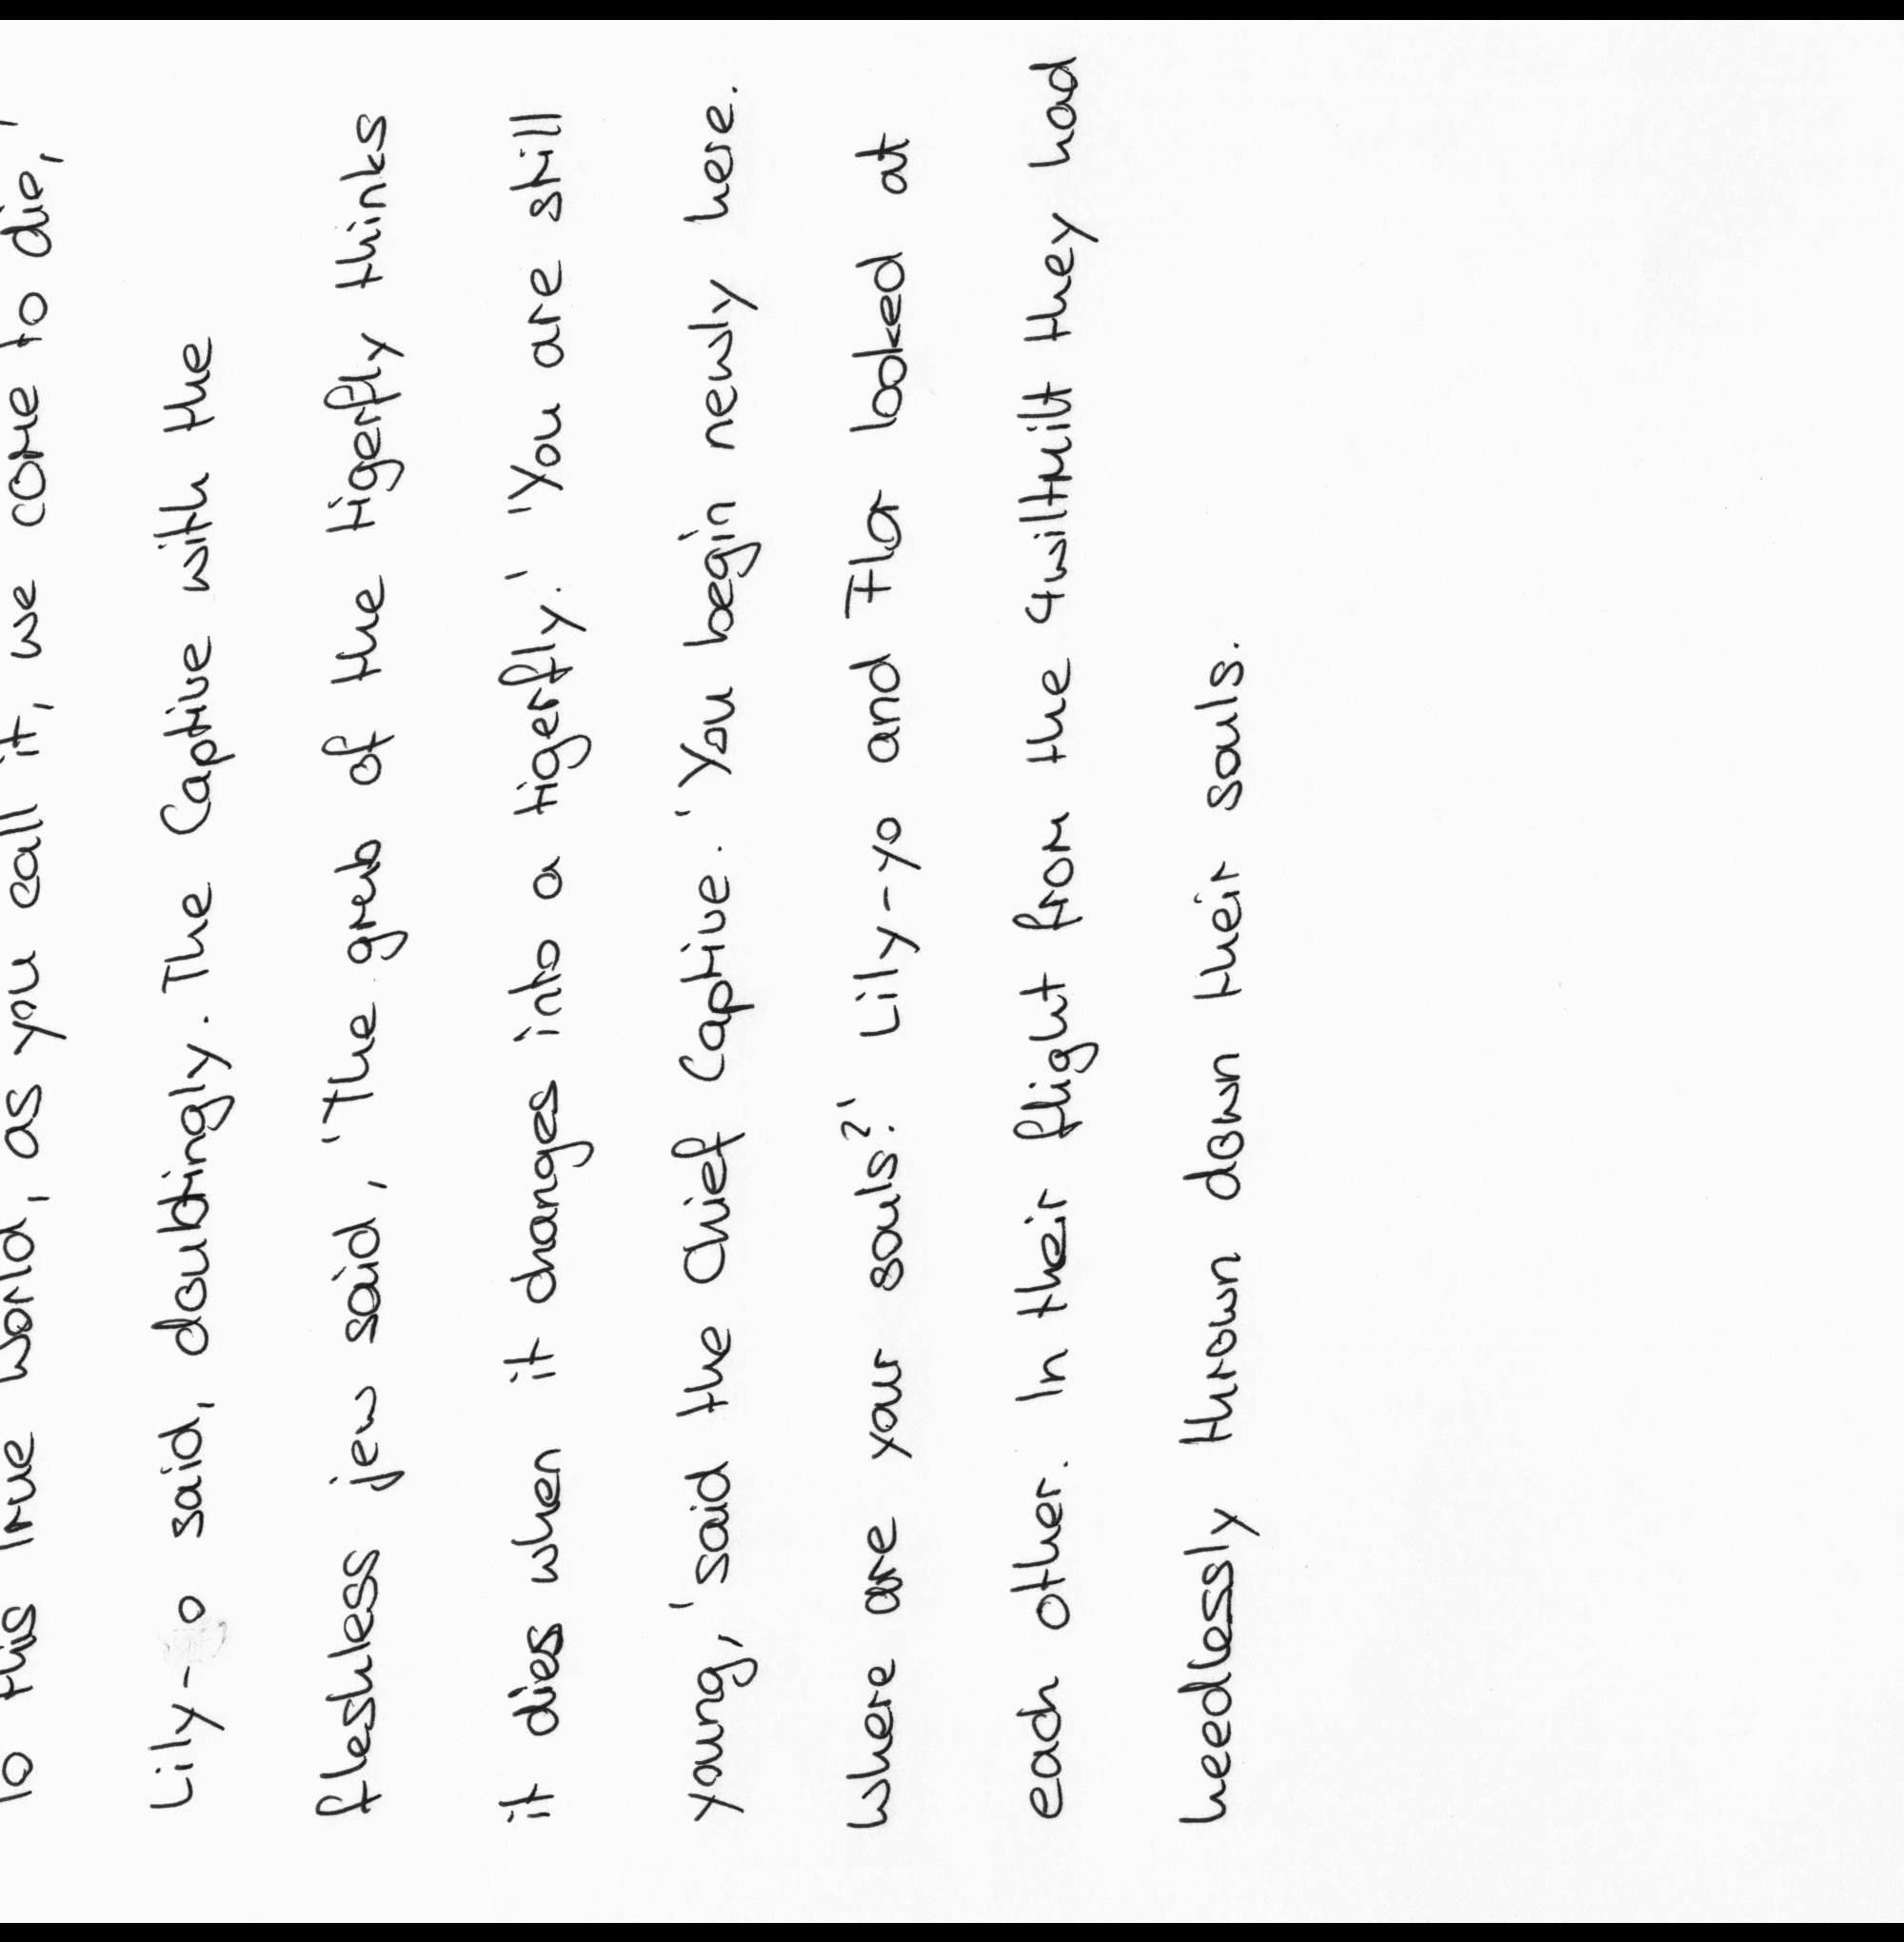 To this true world, as you call it, we come to die,'
Lily-o said, doubtingly. The Captive with the
fleshless jew said, 'The grub of the tigerfly thinks
it dies when it changes into a tigerfly.' 'You are still
young,' said the Chief Captive. 'You begin newly here.
Where are your souls?' Lily-yo and Flor looked at
each other. In their flight from the 4wiltmilt they had
heedlessly thrown down their souls.